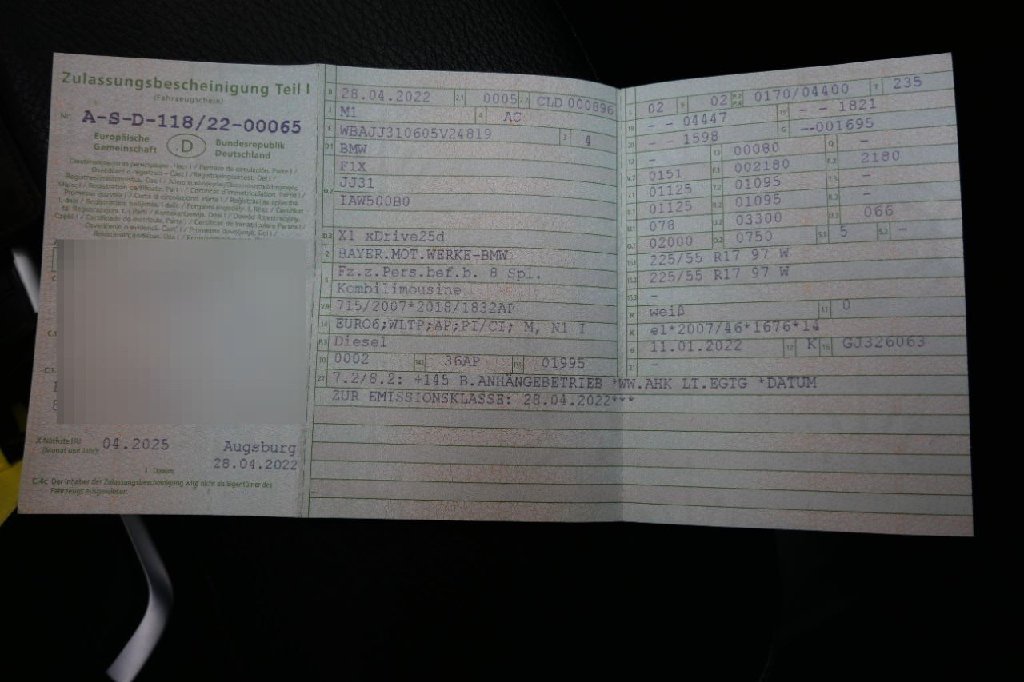 Zulassungsbescheinigung Teil I
(Fahrzeugschein)
Nr. A-S-D-118/22-00065
Europäische Gemeinschaft
D
Bundesrepublik Deutschland
X Nächste HU 04.2025
(Monat und Jahr)
Augsburg
28.04.2022
C.4c Der Inhaber der Zulassungsbescheinigung wird nicht als Eigentümer des Fahrzeugs ausgewiesen.
28.04.2022 0005 CLD 000896
M1 AC
WBAJJ310605V24819 4
BMW
F1X
JJ31
IAW500B0
X1 xDrive25d
BAYER.MOT.WERKE-BMW
Fz.z.Pers.bef.b. 8 Spl.
Kombilimousine
715/2007*2018/1832AP
EURO6;WLTP;AP;PI/CI; M, N1 I
Diesel
0002 36AP 01995
7.2/8.2: +145 B.ANHÄNGEBETRIEB *WW.AHK LT.EGTG *DATUM
ZUR EMISSIONSKLASSE: 28.04.2022***
02 02 0170/04400 235
- - 04447 - - 1821
- 1598 --001695
- 00080 -
0151 002180 2180
01125 01095 -
01125 01095 -
078 03300 066
02000 0750 5 -
225/55 R17 97 W
225/55 R17 97 W
-
weiß 0
e1*2007/46*1676*14
11.01.2022 K GJ326063
-